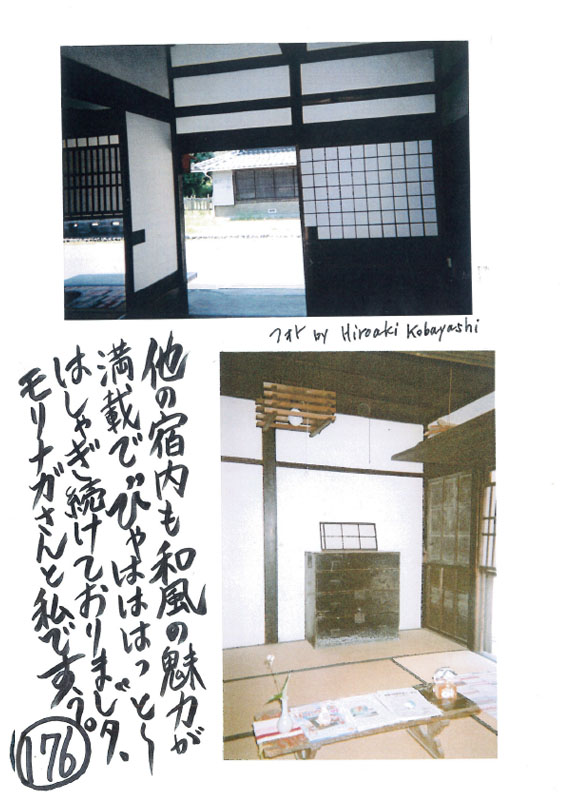 フォト by Hiroaki Kobayashi
他の宿内も和風の魅力が
満載で〝ひゃはははっと〜
はしゃぎ続けておりましタ、
モリナガさんと私です。
176